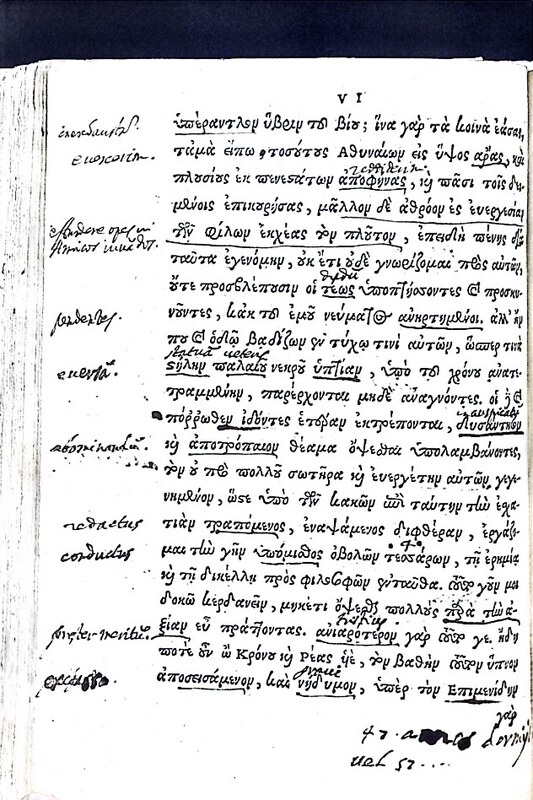 VI
ὑπέραντλον ὕβριν τοῦ βίου; ἵνα γὰρ τὰ κοινὰ ἐάσας,
τἀμὰ εἴπω, τοσούτους Ἀθηναίων εἰς ὕψος ἄρας, καὶ
πλουσίους ἐκ πενεστάτων ἀποφήνας, καὶ πᾶσι τοῖς δεο-
μένοις ἐπικουρήσας, μᾶλλον δὲ ἀθρόον ἐς εὐεργεσίαν
τῶν φίλων ἐκχέας τὸν πλοῦτον, ἐπειδὴ πένης διὰ
ταῦτα ἐγενόμην, οὐκ ἔτι οὐδὲ γνωρίζομαι πρὸς αὐτῶν,
οὔτε προσβλέπουσιν οἱ τέως ὑποπτήσσοντες καὶ προσκυ-
νοῦντες, κἀκ τοῦ ἐμοῦ νεύματος ἀνηρτημένοι. ἀλλ' ἤν
που καὶ ὁδῷ βαδίζων ἐντύχω τινὶ αὐτῶν, ὥσπερ τινὰ
statuā ueteris
perdentes.
στήλην παλαιοῦ νεκροῦ ὑπτίαν, ὑπὸ τοῦ χρόνου ἀνατε-
τραμμένην, παρέρχονται μηδὲ ἀναγνόντες. οἱ δὲ καὶ
πόρρωθεν ἰδόντες ἑτέραν ἐκτρέπονται, δυσάντητον
καὶ ἀποτρόπαιον θέαμα ὄψεσθαι ὑπολαμβάνοντες,
τὸν οὐ πρὸ πολλοῦ σωτῆρα καὶ εὐεργέτην αὐτῶν γεγε-
νημένον, ὥστε ὑπὸ τῶν κακῶν ἐπὶ ταύτην τὴν ἐσχα-
redactus
τιὰν τραπόμενος, ἐναψάμενος διφθέραν, ἐργάζο-
conductus
μαι τὴν γῆν ὑπόμισθος ὀβολῶν τεσσάρων, τῇ ἐρημίᾳ
καὶ τῇ δικέλλῃ προσφιλοσοφῶν ἐνταῦθα. τοῦτο γοῦν μοι
δοκῶ κερδανεῖν, μηκέτι ὄψεσθαι πολλοὺς παρὰ τὴν ἀ-
ξίαν εὖ πράττοντας. ἀνιαρότερον γὰρ τοῦτο γε. ἤδη
ποτὲ οὖν ὦ Κρόνου καὶ Ρέας υἱὲ, τὸν βαθὺν τοῦτον ὕπνον
ἀποσεισάμενον, καὶ νήδυμον, ὑπὲρ τὸν Ἐπιμενίδην
γὰρ
47 annos
uel 57